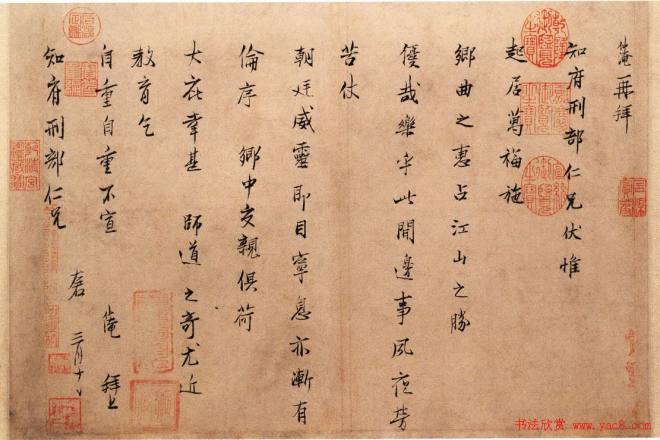 仲淹再拜
知府刑部仁兄伏惟
起居萬福施
鄉曲之惠占江山之勝
優哉樂乎此間邊事夙夜勞
苦仗
朝廷威靈即目寧息亦漸有
倫序 鄉中交親俱荷
大庇幸甚 師道之奇尤近
教育乞
自重自重不宣 仲淹 拜上
知府刑部仁兄 左右 三月十日
书法欣赏 www.yac8.com